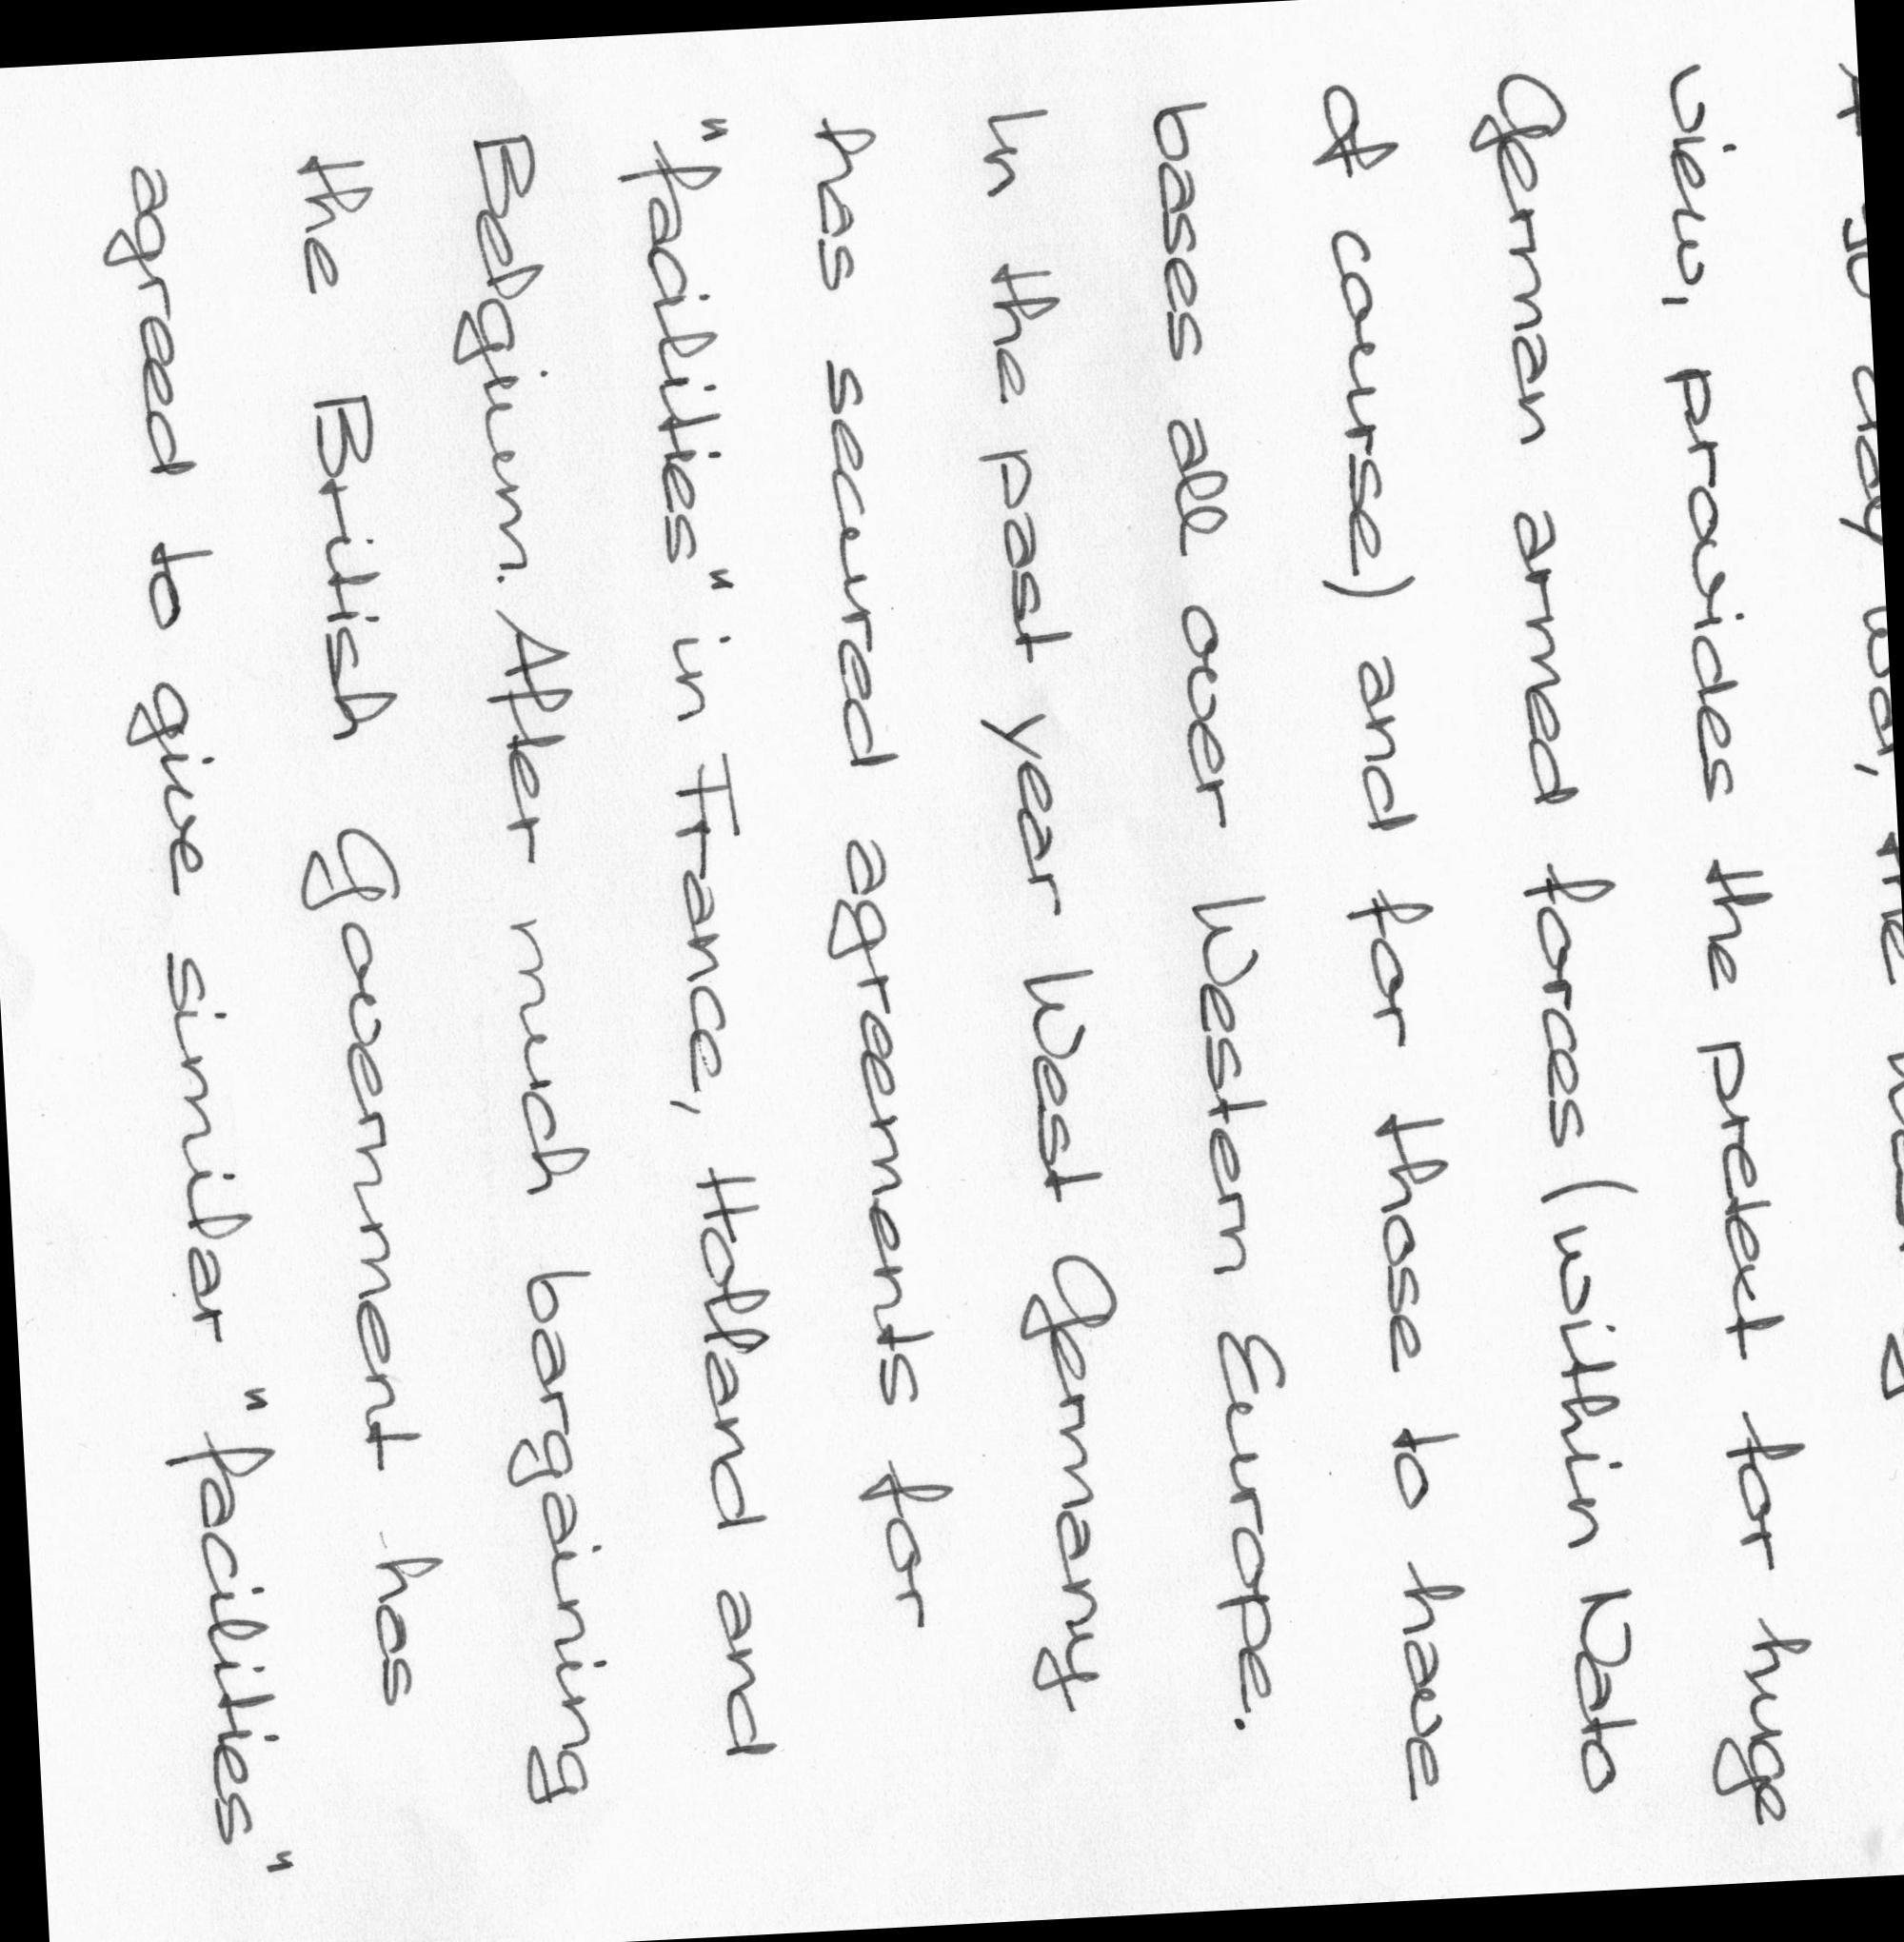 A 30 day war, the
view, provides the pretext for huge
German armed forces (within Nato
of course) and for those to have
bases all over Western Europe.
In the past year West Germany
has secured agreements for
"facilities" in France, Holland and
Belgium. After much bargaining
the British Government has
agreed to give similar "facilities"